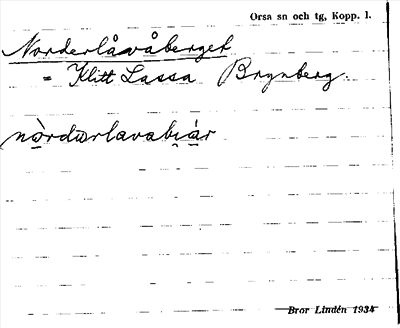 Orsa sn och tg, Kopp. l.
Norderlåvåberget
= Klitt Lassa Brynberg.
nòrdərlavabi̯är
Bror Lindén 1934